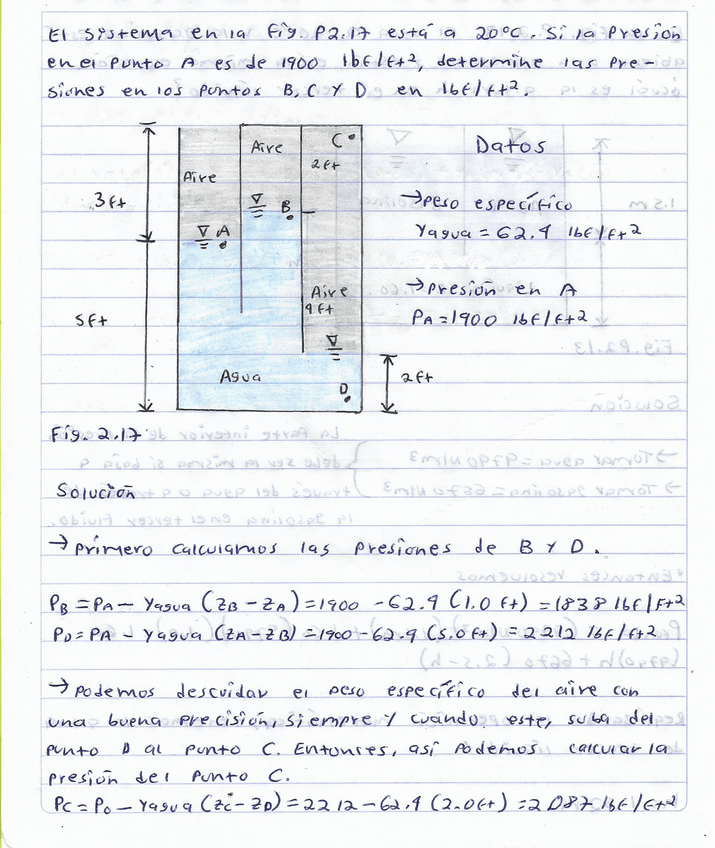 El sistema en la Fig. P2.17 está a 20°C. Si la Presión
en el Punto A es de 1900 lbf/ft², determine las Pre-
siones en los Puntos B, C Y D en lbf/ft².
Aire
C
Datos
2ft
Aire
3ft
B
→Peso específico
A
γagua = 62.4 lbf/ft²
Aire
4ft
→Presión en A
PA=1900 lbf/ft²
5ft
Agua
2ft
D
Fig. 2.17
Solución
→Primero calculamos las Presiones de B Y D.
PB = PA - γagua (ZB - ZA) = 1900 - 62.4 (1.0 ft) = 1838 lbf/ft²
PD = PA - γagua (ZA - ZB) = 1900 - 62.4 (5.0 ft) = 2212 lbf/ft²
→ Podemos descuidar el Peso específico del aire con
una buena Precisión, siempre Y cuando este, suba del
Punto D al Punto C. Entonces, así Podemos calcular la
Presión del Punto C.
PC = PD - γagua (ZC - ZD) = 2212 - 62.4 (2.0 ft) = 2087 lbf/ft²